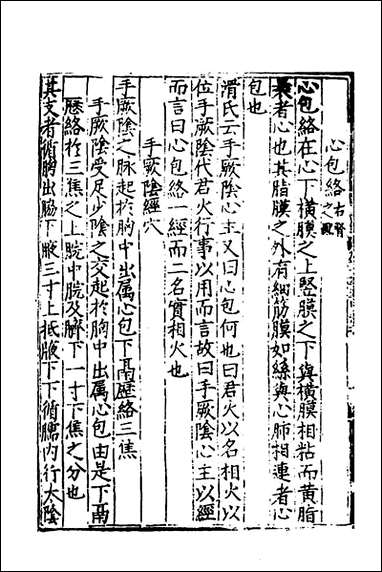 心包絡右腎之配
心包絡在心下橫膜之上竪膜之下與橫膜相粘而黄脂
裹者心也其脂膜之外有細筋膜如絲與心肺相連者心
包也
滑氏云手厥陰心主又曰心包何也曰君火以名相火以
位手厥陰代君火行事以用而言故曰手厥陰心主以經
而言曰心包絡一經而二名實相火也
手厥陰經穴
手厥陰之脉起於胸中出属心包下鬲歷絡三焦
手厥陰受足少陰之交起於胸中出属心包由是下鬲
歷絡於三焦之上脘中脘及臍下一寸下焦之分也
其支者循胸出脇下腋三寸上抵腋下下循臑内行太陰